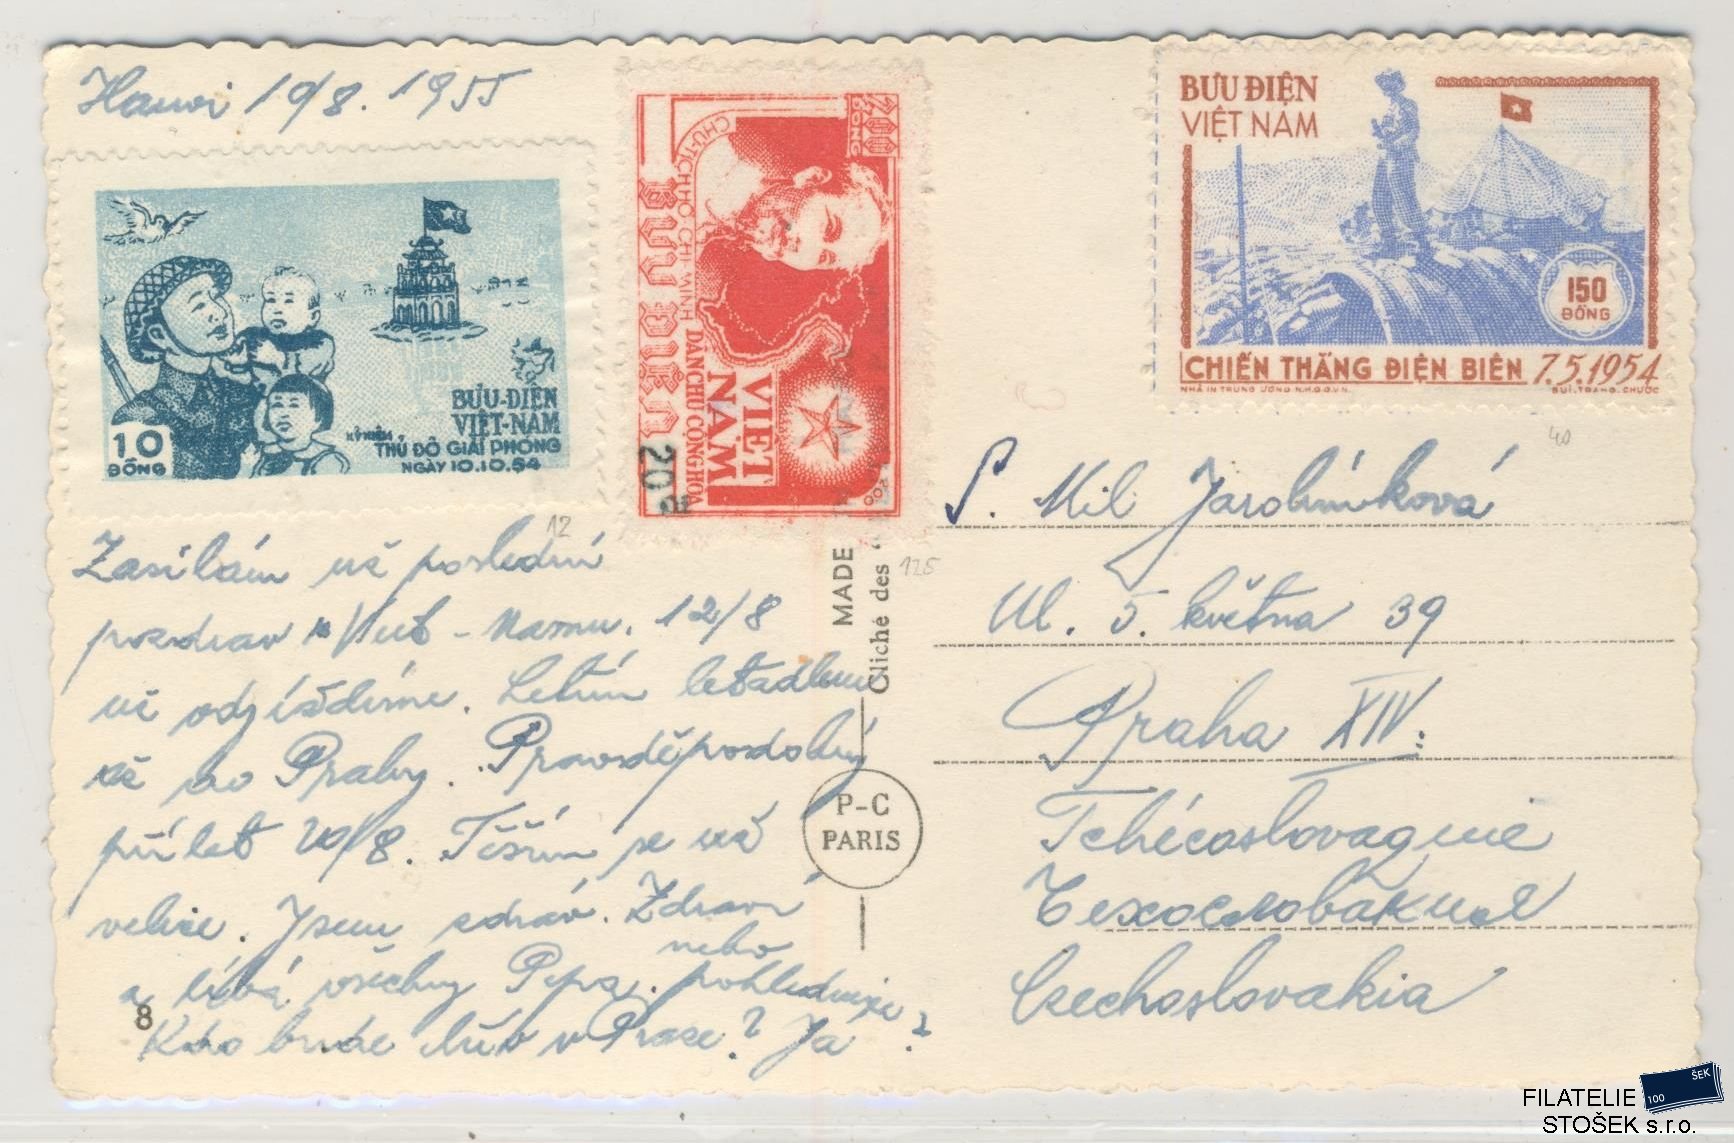 Hanoi 10/8. 1955
BƯU-ĐIỆN
VIỆT-NAM
KỶ NIỆM
THỦ ĐÔ GIẢI PHÓNG
NGÀY 10.10.54
10
ĐỒNG
CHỦ-TỊCH HỒ CHÍ MINH
BƯU ĐIỆN
VIỆT
NAM
DÂN CHỦ CỘNG HÒA
ĐỒNG
20
BƯU ĐIỆN
VIỆT NAM
150
ĐỒNG
CHIẾN THẮNG ĐIỆN BIÊN 7.5.1954
NHÀ IN TRUNG ƯƠNG N.H.Q.G.V.N.
BÙI. TRANG. CHƯỚC
12
125
40
Zasílám už poslední
pozdrav z Viet-Namu. 12/8
už odjíždíme. Letím letadlem
až do Prahy. Pravděpodobný
přílet 20/8. Těším se už
velice. Jsem zdráv. Zdraví
a líbá všechny Pepa.
nebo
pohlednice?
Kdo bude dřív v Praze? Já
8
MADE
Cliché des
P-C
PARIS
P. Mil Jarolímková
Ul. 5. května 39
Praha XIV.
Tchécoslovaquie
Чехословакия
Czechoslovakia
FILATELIE
STOŠEK s.r.o.
100
ŠEK